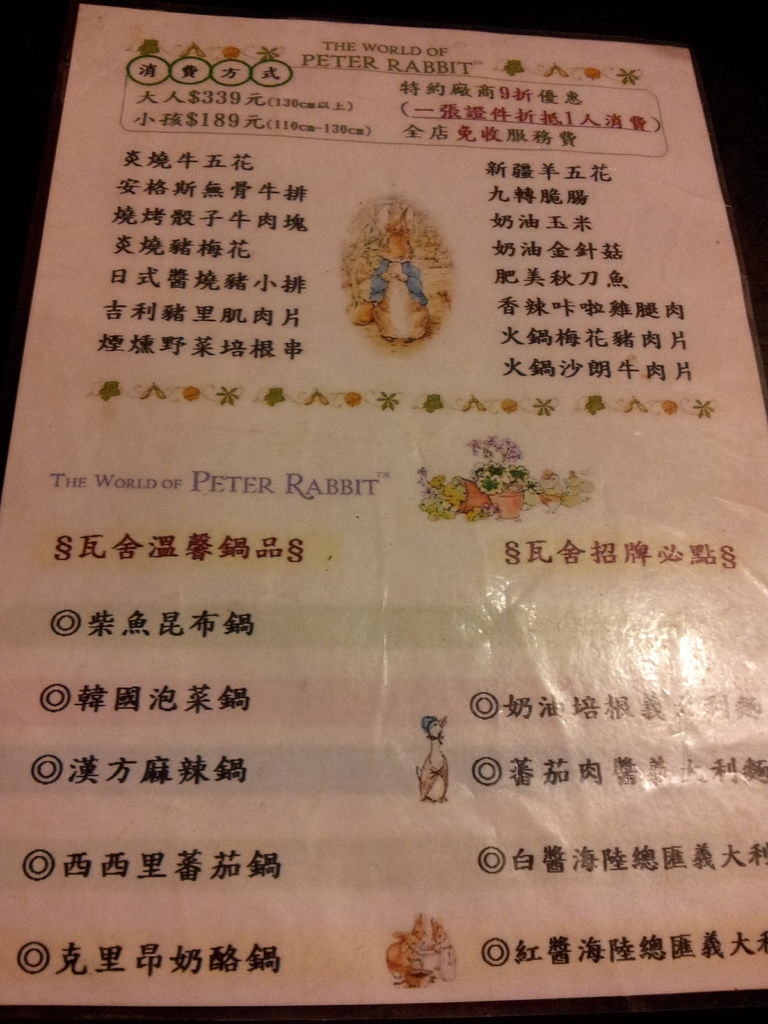 THE WORLD OF
PETER RABBIT™
消費方式
大人$339元(130cm以上)
小孩$189元(110cm-130cm)
特約廠商9折優惠
(一張證件折抵1人消費)
全店免收服務費
炎燒牛五花
安格斯無骨牛排
燒烤骰子牛肉塊
炎燒豬梅花
日式醬燒豬小排
吉利豬里肌肉片
煙燻野菜培根串
新疆羊五花
九轉脆腸
奶油玉米
奶油金針菇
肥美秋刀魚
香辣咔啦雞腿肉
火鍋梅花豬肉片
火鍋沙朗牛肉片
THE WORLD OF PETER RABBIT™
§瓦舍溫馨鍋品§
◎柴魚昆布鍋
◎韓國泡菜鍋
◎漢方麻辣鍋
◎西西里蕃茄鍋
◎克里昂奶酪鍋
§瓦舍招牌必點§
◎奶油培根義大利麵
◎蕃茄肉醬義大利麵
◎白醬海陸總匯義大利
◎紅醬海陸總匯義大利